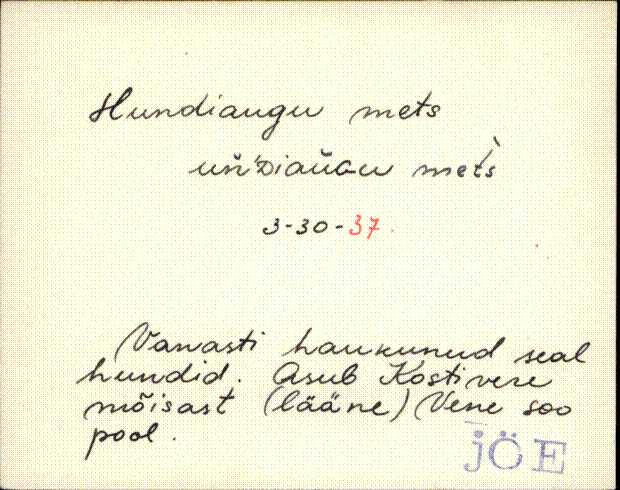 Hundiaugu mets
3-30-37
Vanasti haukunud seal
hundid. Asub Kostivere
mõisast (lääne) Vene soo
pool.
JÖE